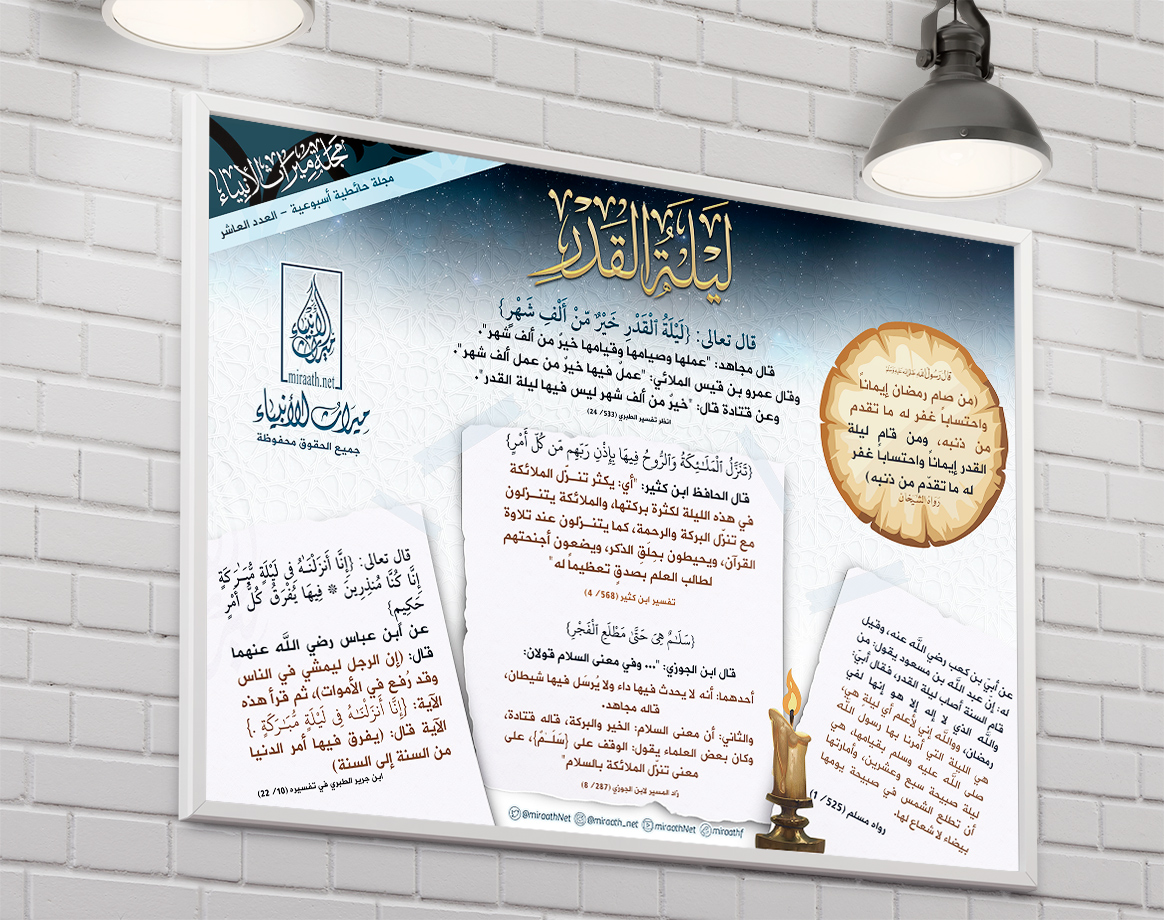 مجلة ميراث الأنبياء
مجلة حائطية أسبوعية - العدد العاشر
ميراث الأنبياء
miraath.net
ميراث الأنبياء
جميع الحقوق محفوظة
لَيْلَةُ القَدْرِ
قال تعالى: {لَيْلَةُ ٱلْقَدْرِ خَيْرٌ مِّنْ أَلْفِ شَهْرٍ}
قال مجاهد: "عملها وصيامها وقيامها خيرٌ من ألف شهر".
وقال عمرو بن قيس الملائي: "عملٌ فيها خيرٌ من عمل ألف شهر".
وعن قتادة قال: "خيرٌ من ألف شهر ليس فيها ليلة القدر".
انظر تفسير الطبري (533/ 24)
قال رسول الله صلى الله عليه وسلم
(من صام رمضان إيماناً
واحتساباً غفر له ما تقدم
من ذنبه، ومن قام ليلة
القدر إيماناً واحتساباً غفر
له ما تقدّم من ذنبه)
رواه الشيخان
{تَنَزَّلُ ٱلْمَلَـٰٓئِكَةُ وَٱلرُّوحُ فِيهَا بِإِذْنِ رَبِّهِم مِّن كُلِّ أَمْرٍ}
قال الحافظ ابن كثير: "أي: يكثر تنـزّل الملائكة
في هذه الليلة لكثرة بركتها، والملائكة يتنـزلون
مع تنزّل البركة والرحمة، كما يتنـزلون عند تلاوة
القرآن، ويحيطون بحِلَقِ الذكر، ويضعون أجنحتهم
لطالب العلم بصدقٍ تعظيماً له"
تفسير ابن كثير (568/ 4)
{سَلَـٰمٌ هِىَ حَتَّىٰ مَطْلَعِ ٱلْفَجْرِ}
قال ابن الجوزي: "... وفي معنى السلام قولان:
أحدهما: أنه لا يحدث فيها داء ولا يُرسَل فيها شيطان،
قاله مجاهد.
والثاني: أن معنى السلام: الخير والبركة، قاله قتادة،
وكان بعض العلماء يقول: الوقف على {سَلَـٰمٌ}، على
معنى تنزّل الملائكة بالسلام"
زاد المسير لابن الجوزي (287/ 8)
قال تعالى: {إِنَّآ أَنزَلْنَـٰهُ فِى لَيْلَةٍ مُّبَـٰرَكَةٍ
إِنَّا كُنَّا مُنذِرِينَ * فِيهَا يُفْرَقُ كُلُّ أَمْرٍ
حَكِيمٍ}
عن ابن عباس رضي اللَّه عنهما
قال: (إن الرجل ليمشي في الناس
وقد رُفع في الأموات)، ثم قرأ هذه
الآية: {إِنَّآ أَنزَلْنَـٰهُ فِى لَيْلَةٍ مُّبَـٰرَكَةٍ .}
الآية قال: (يفرق فيها أمر الدنيا
من السنة إلى السنة)
ابن جرير الطبري في تفسيره (10/ 22)
عن أبيّ بن كعب رضي اللَّه عنه، وقيل
له: إن عبد اللَّه بن مسعود يقول: من
قام السنة أصاب ليلة القدر، فقال أبيّ:
واللَّه الذي لا إله إلا هو إنها لفي
رمضان، وواللَّه إني لأعلم أي ليلة هي،
هي الليلة التي أمرنا بها رسول اللَّه
صلى اللَّه عليه وسلم بقيامها، هي
ليلة صبيحة سبع وعشرين، وأمارتها
أن تطلع الشمس في صبيحة يومها
بيضاء لا شعاع لها.
رواه مسلم (525/ 1)
@miraathNet @miraath_net miraathNet miraathf